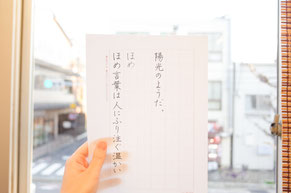 ほめ言葉は人にふり注ぐ温かい
ほめ
陽光のようだ。